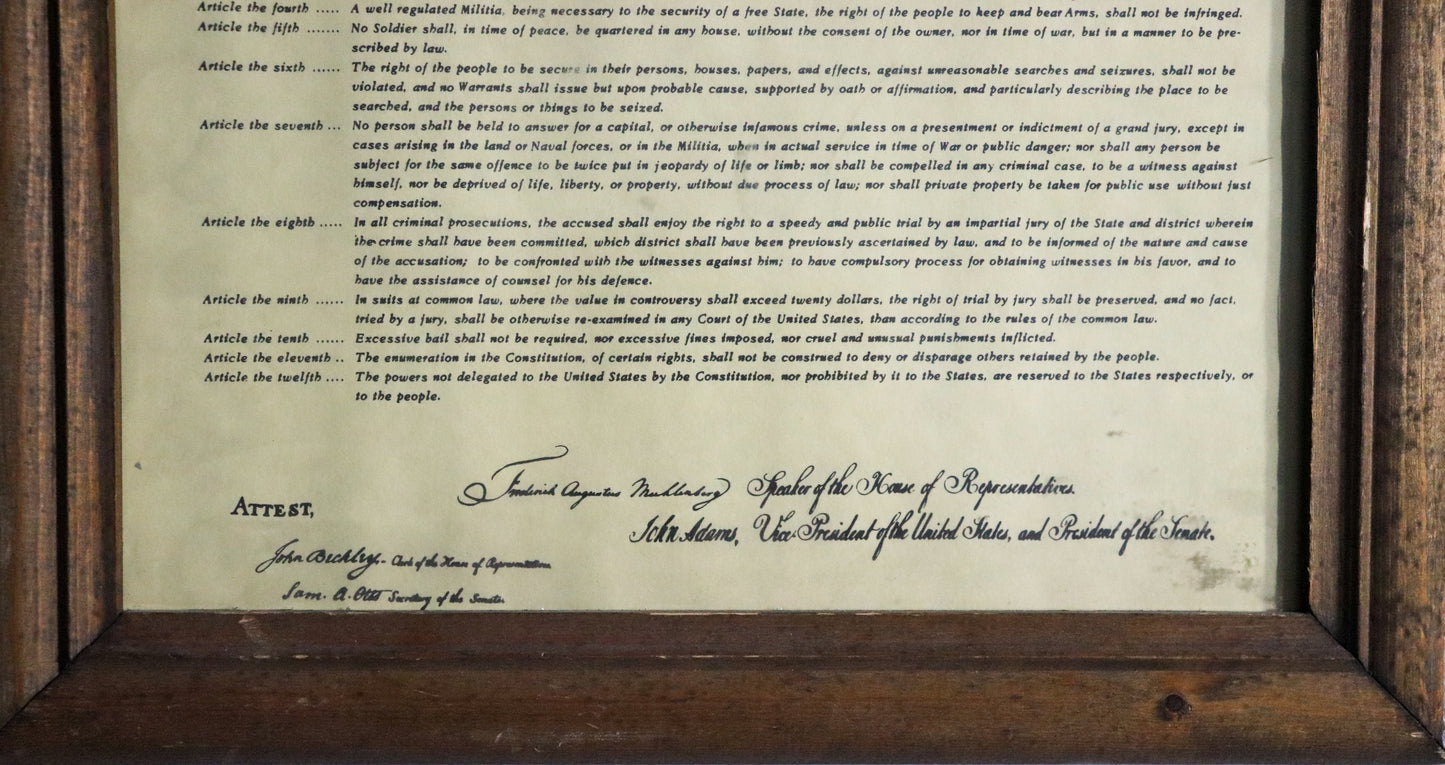 Article the fourth ..... A well regulated Militia, being necessary to the security of a free State, the right of the people to keep and bear Arms, shall not be infringed.
Article the fifth ....... No Soldier shall, in time of peace, be quartered in any house, without the consent of the owner, nor in time of war, but in a manner to be pre-
scribed by law.
Article the sixth ...... The right of the people to be secure in their persons, houses, papers, and effects, against unreasonable searches and seizures, shall not be
violated, and no Warrants shall issue but upon probable cause, supported by oath or affirmation, and particularly describing the place to be
searched, and the persons or things to be seized.
Article the seventh ... No person shall be held to answer for a capital, or otherwise infamous crime, unless on a presentment or indictment of a grand jury, except in
cases arising in the land or Naval forces, or in the Militia, when in actual service in time of War or public danger; nor shall any person be
subject for the same offence to be twice put in jeopardy of life or limb; nor shall be compelled in any criminal case, to be a witness against
himself, nor be deprived of life, liberty, or property, without due process of law; nor shall private property be taken for public use without just
compensation.
Article the eighth ..... In all criminal prosecutions, the accused shall enjoy the right to a speedy and public trial by an impartial jury of the State and district wherein
the crime shall have been committed, which district shall have been previously ascertained by law, and to be informed of the nature and cause
of the accusation; to be confronted with the witnesses against him; to have compulsory process for obtaining witnesses in his favor, and to
have the assistance of counsel for his defence.
Article the ninth ...... In suits at common law, where the value in controversy shall exceed twenty dollars, the right of trial by jury shall be preserved, and no fact,
tried by a jury, shall be otherwise re-examined in any Court of the United States, than according to the rules of the common law.
Article the tenth ...... Excessive bail shall not be required, nor excessive fines imposed, nor cruel and unusual punishments inflicted.
Article the eleventh .. The enumeration in the Constitution, of certain rights, shall not be construed to deny or disparage others retained by the people.
Article the twelfth .... The powers not delegated to the United States by the Constitution, nor prohibited by it to the States, are reserved to the States respectively, or
to the people.
Frederick Augustus Muhlenberg Speaker of the House of Representatives.
ATTEST,
John Adams, Vice-President of the United States, and President of the Senate.
John Beckley,- Clerk of the House of Representatives
Sam. A. Otis Secretary of the Senate.